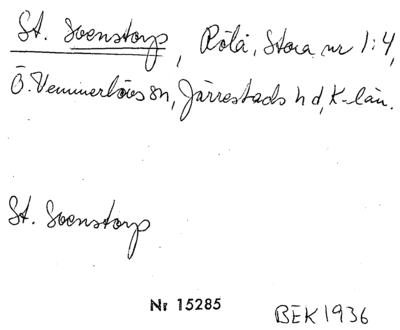 St. Svenstorp, Rölå, Stora nr 1:4,
Ö. Vemmerlövs sn, Järrestads hd, K-län.
St. Svenstorp
Nr 15285
BEK 1936